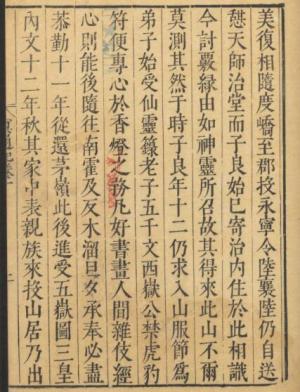 美復相隨度嶠至郡投永寧令陸襄陸仍自送
憇天師治堂而子良始已寄治内住於此相識
今討覈緣由如神靈所召故其得來此山不爾
莫測其然于時子良年十二仍求入山服節爲
弟子始受仙靈籙老子五千文西嶽公禁虎豹
符便專心於香燈之務凡好書畫人間雜伎經
心則能後隨往南霍及反木溜旦夕承奉必盡
恭勤十一年從還茅嶺此後進受五嶽圖三皇
內文十二年秋其家中表親族來投山居乃出